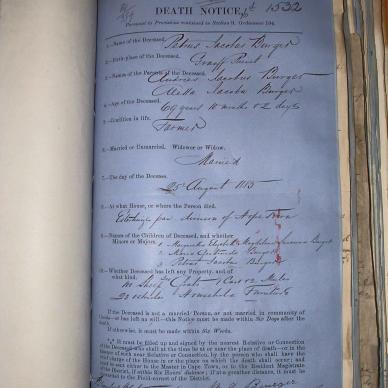 DEATH NOTICE, 1532
Pursuant to Provisions contained in Section 9. Ordinance 104.
1.—Name of the Deceased, Petrus Jacobus Burger
2.—Birth-place of the Deceased. Graaff Reinet
3.—Names of the Parents of the Deceased. Andries Jacobus Burger
Jacoba Burger
4.—Age of the Deceased. 69 years 10 months & 2 days
5.—Condition in life. Farmer
6.—Married or Unmarried, Widower or Widow.
Married
7.—The day of the Decease.
25 August
8.—At what House, or where the Person died.
division of
9.—Names of the Children of Deceased, and whether
Minors or Majors. 1. Elizabeth Magdalena Burger
2. Maria Gertruida Burger
3. Petrus Jacobus Burger
10.—Whether Deceased has left any Property, and of
what kind. Sheep Goats 1 Cart & 2 Mules
Household Furniture
If the Deceased is not a married Person, or not married, in community of
Goods,—or has left no will—this Notice must be made within Six Days after the
Death.
If otherwise, it must be made within Six Weeks.
It must be filled up and signed by the nearest Relative or Connection
of the Deceased who shall at the time be at or near the place of death—or in the
absence of such near Relative or Connection, by the person who shall have the
chief charge of the House in or the place on which the death shall occur; and
must be sent either to the Master in Cape Town, or to the Resident Magistrate
of the District, if within Six Hours' distance; if at a greater distance, it must be
to the Field-cornet of the District.
Burger